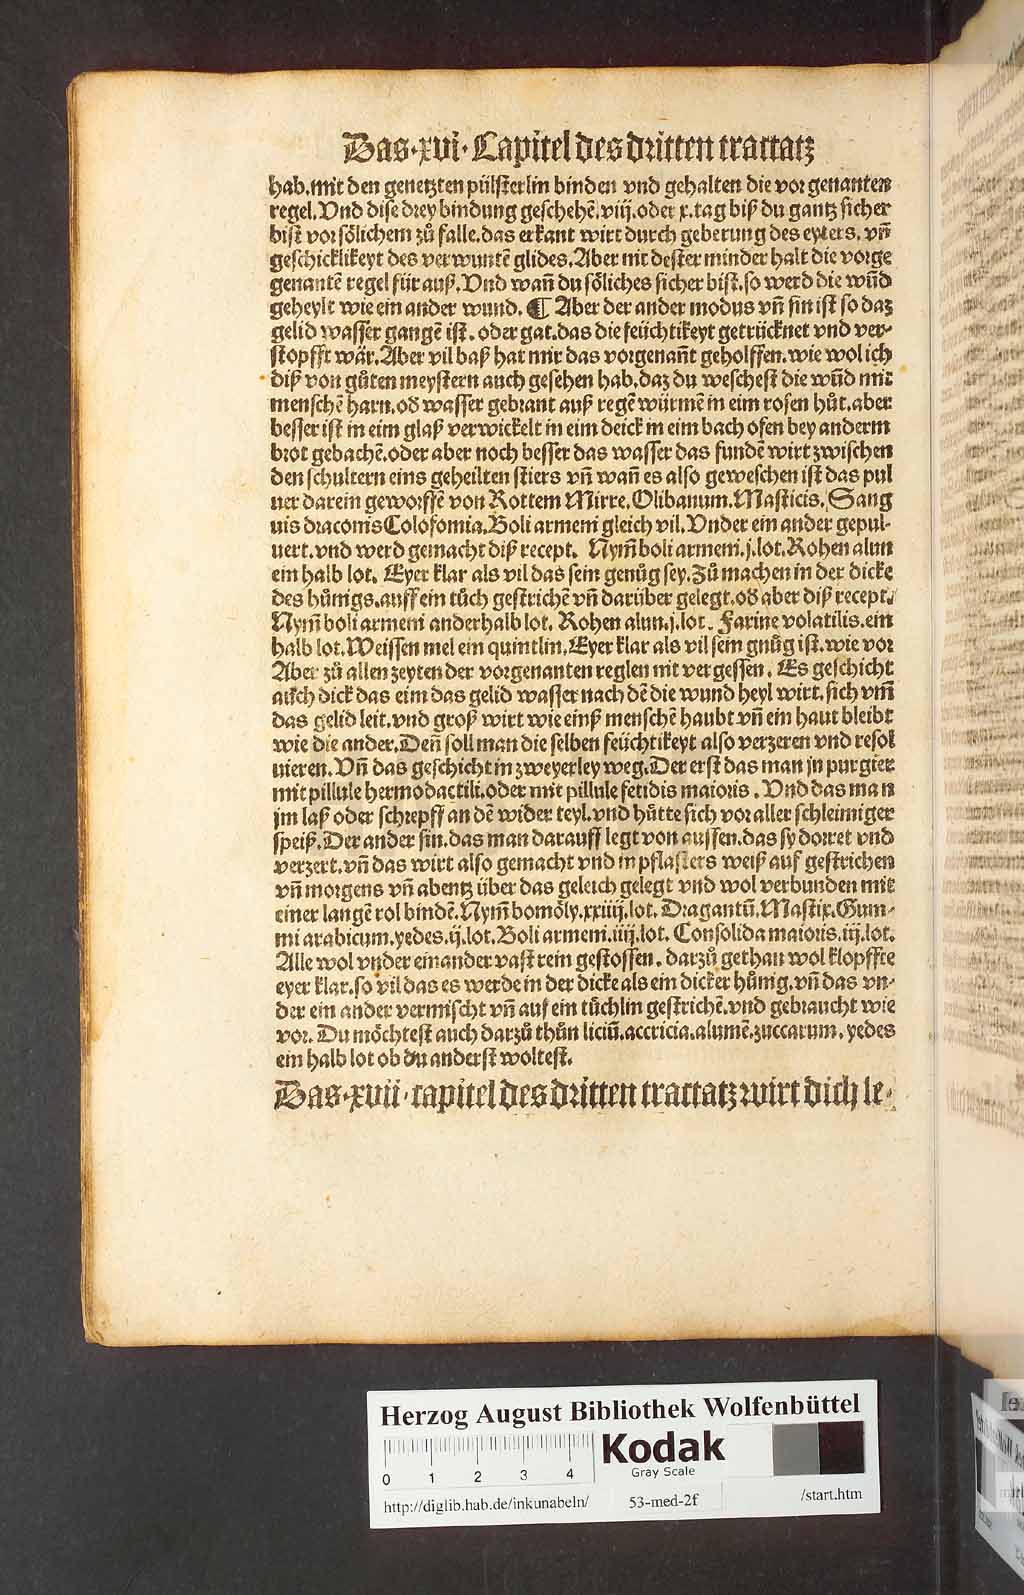 Das·xvi·Capitel des dritten tractatz
hab.mit den genetzten pülsterlin binden vnd gehalten die vorgenanten
regel.Vnd dise drey bindung geschehē.viij.oder x.tag biß du gantz sicher
bist vor sölichem zů falle.das erkant wirt durch geberung des eyters.vñ
geschicklikeyt des verwuntē glides.Aber nit dester minder halt die vorge
genantē regel für auß.Vnd wañ du söliches sicher bist.so werd die wūd
geheylt wie ein ander wund.¶ Aber der ander modus vñ sin ist so daz
gelid wasser gangē ist.oder gat.das die feüchtikeyt getrücknet vnd ver-
stopfft wär.Aber vil baß hat mir das vorgenañt geholffen.wie wol ich
diß von gůten meystern auch gesehen hab.daz du weschest die wūd mit
menschē harn.od wasser gebrant auß regē würmē in eim rosen hůt.aber
besser ist in eim glaß verwickelt in eim deick in eim bachofen bey anderm
brot gebachē.oder aber noch besser das wasser das fundē wirt zwischen
den schultern eins geheilten stiers vñ wañ es also geweschen ist das pul
uer darein geworffē von Rottem Mirre.Olibanum.Masticis.Sang
uis draconis Colofomia.Boli armeni gleich vil.Vnder ein ander gepul-
uert.vnd werd gemacht diß recept. Nym̄ boli armeni.j.lot.Rohen alun
ein halb lot. Eyer klar als vil das sein genůg sey.Zů machen in der dicke
des hůnigs.auff ein tůch gestrichē vñ darüber gelegt.od aber diß recept.
Nym̄ boli armeni anderhalb lot. Rohen alun.j.lot. Farine volatilis.ein
halb lot.Weissen mel ein quintlin.Eyer klar als vil sein gnůg ist.wie vor
Aber zů allen zeyten der vorgenanten reglen nit vergessen. Es geschicht
auch dick das eim das gelid wasser nach dē die wund heyl wirt.sich vm̄
das gelid leit.vnd groß wirt wie einß menschē haubt vñ ein haut bleibt
wie die ander.Deñ soll man die selben feüchtikeyt also verzeren vnd resol
uieren.Vñ das geschicht in zweyerley weg.Der erst das man jn purgier
mit pillule hermodactili.oder mit pillule fetidis maioris. Vnd das man
jm laß oder schrepff an dē wider teyl.vnd hůtte sich vor aller schleimiger
speiß.Der ander sin.das man darauff legt von aussen.das sy dorret vnd
verzert.vñ das wirt also gemacht vnd in pflasters weiß auf gestrichen
vñ morgens vñ abentz über das geleich gelegt vnd wol verbunden mit
einer langē rol bindē.Nym̄ bomöly.xxiiij.lot.Dragantū.Mastix.Gum-
mi arabicum.yedes.ij.lot.Boli armeni.iiij.lot. Consolida maioris.iij.lot.
Alle wol vnder einander vast rein gestossen. darzů gethan wol klopffte
eyer klar.so vil das es werde in der dicke als ein dicker hůnig.vñ das vn-
der ein ander vermischt vñ auf ein tůchlin gestrichē.vnd gebraucht wie
vor. Du möchtest auch darzů thůn liciū.accricia.alumē.zuccarum.yedes
ein halb lot ob du anderst woltest.
Das·xvii·capitel des dritten tractatz wirt dich le-
Herzog August Bibliothek Wolfenbüttel
Kodak
Gray Scale
0 1 2 3 4
http://diglib.hab.de/inkunabeln/ 53-med-2f /start.htm